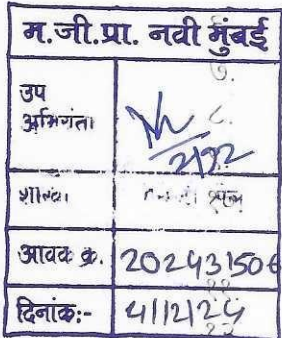 म.जी.प्रा. नवी मुंबई
उप
अभियंता
2/12
शाखा
आवक क्र. 202431506
दिनांक:- 4/12/24